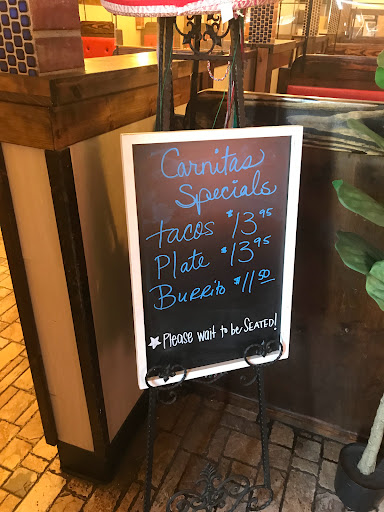 Carnitas
Specials
tacos $13.95
Plate $13.95
Burrito $11.50
Please wait to be SEATED!